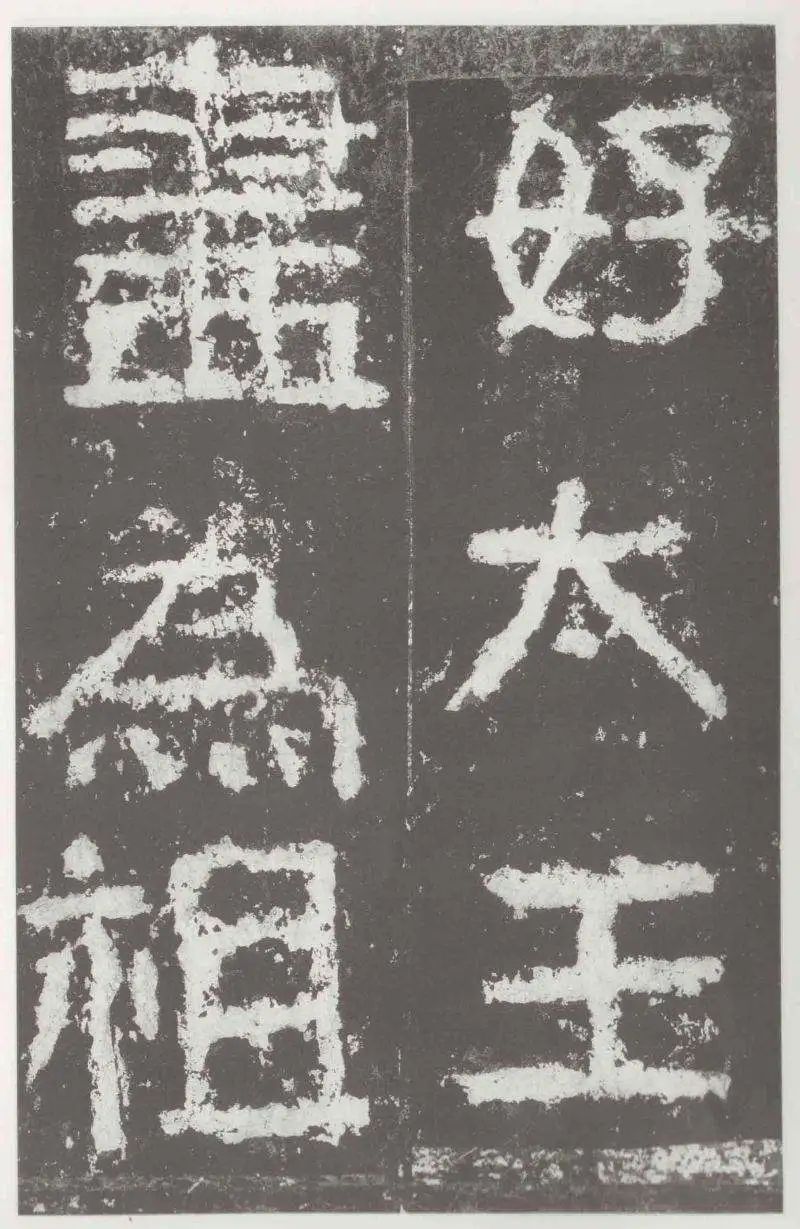 好太王
盡為祖